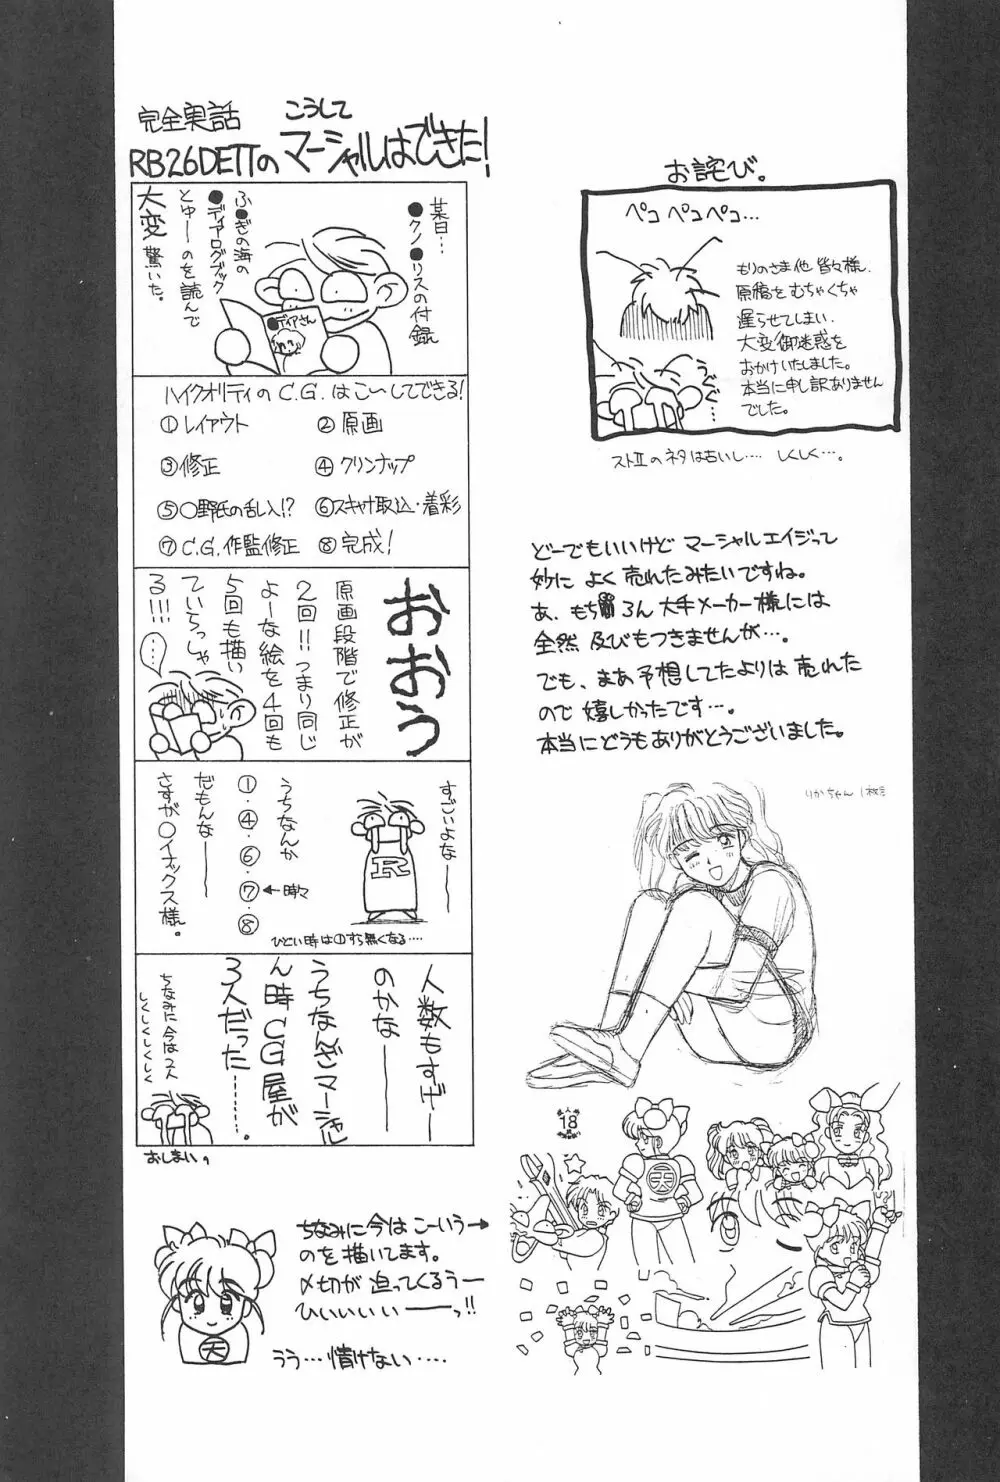 完全実話
こうして
RB26DETTのマーシャルはできた!
某日…
●クノ●リスの付録
ふ●ぎの海の
●ディアログブック
とゆーのを読んで
大変驚いた。
●ディアさん
ハイクオリティのC.G.はこ〜してできる!
①レイアウト
②原画
③修正
④クリンナップ
⑤○野氏の乱入!?
⑥スキャナ取込・着彩
⑦C.G.作監修正
⑧完成!
おおう
原画段階で修正が
2回!!つまり同じ
よーな絵を4回も
5回も描い
ていらっしゃ
る!!!
(……)
すごいよな――
R
うちなんか
①・④・⑥・⑦・⑧
←時々
だもんな――
さすが○イナックス様。
ひどい時は①すら無くなる‥‥
人数もすげー
のかな――
うちなんざマーシャル
ん時CG屋が
3人だった………。
ちなみに今は2人
しくしくしくしく
おしまい。
天
ちなみに今はこーいう→
のを描いてます。
〆切が迫ってくるうー
ひいいいい――っ!!
うう…情けない‥‥
お詫び。
ペコペコペコ…
もりのさま他皆々様、
原稿をむちゃくちゃ
遅らせてしまい、
大変御迷惑を
おかけいたしました。
本当に申し訳ありません
でした。
ストⅡのネタは古いし‥‥しくしく…。
どーでもいいけどマーシャルエイジって
妙によく売れたみたいですね。
あ、もちろん大手メーカー様には
全然及びもつきませんが…。
でも、まあ予想してたよりは売れた
ので嬉しかったです…。
本当にどうもありがとうございました。
りかちゃん
18
天